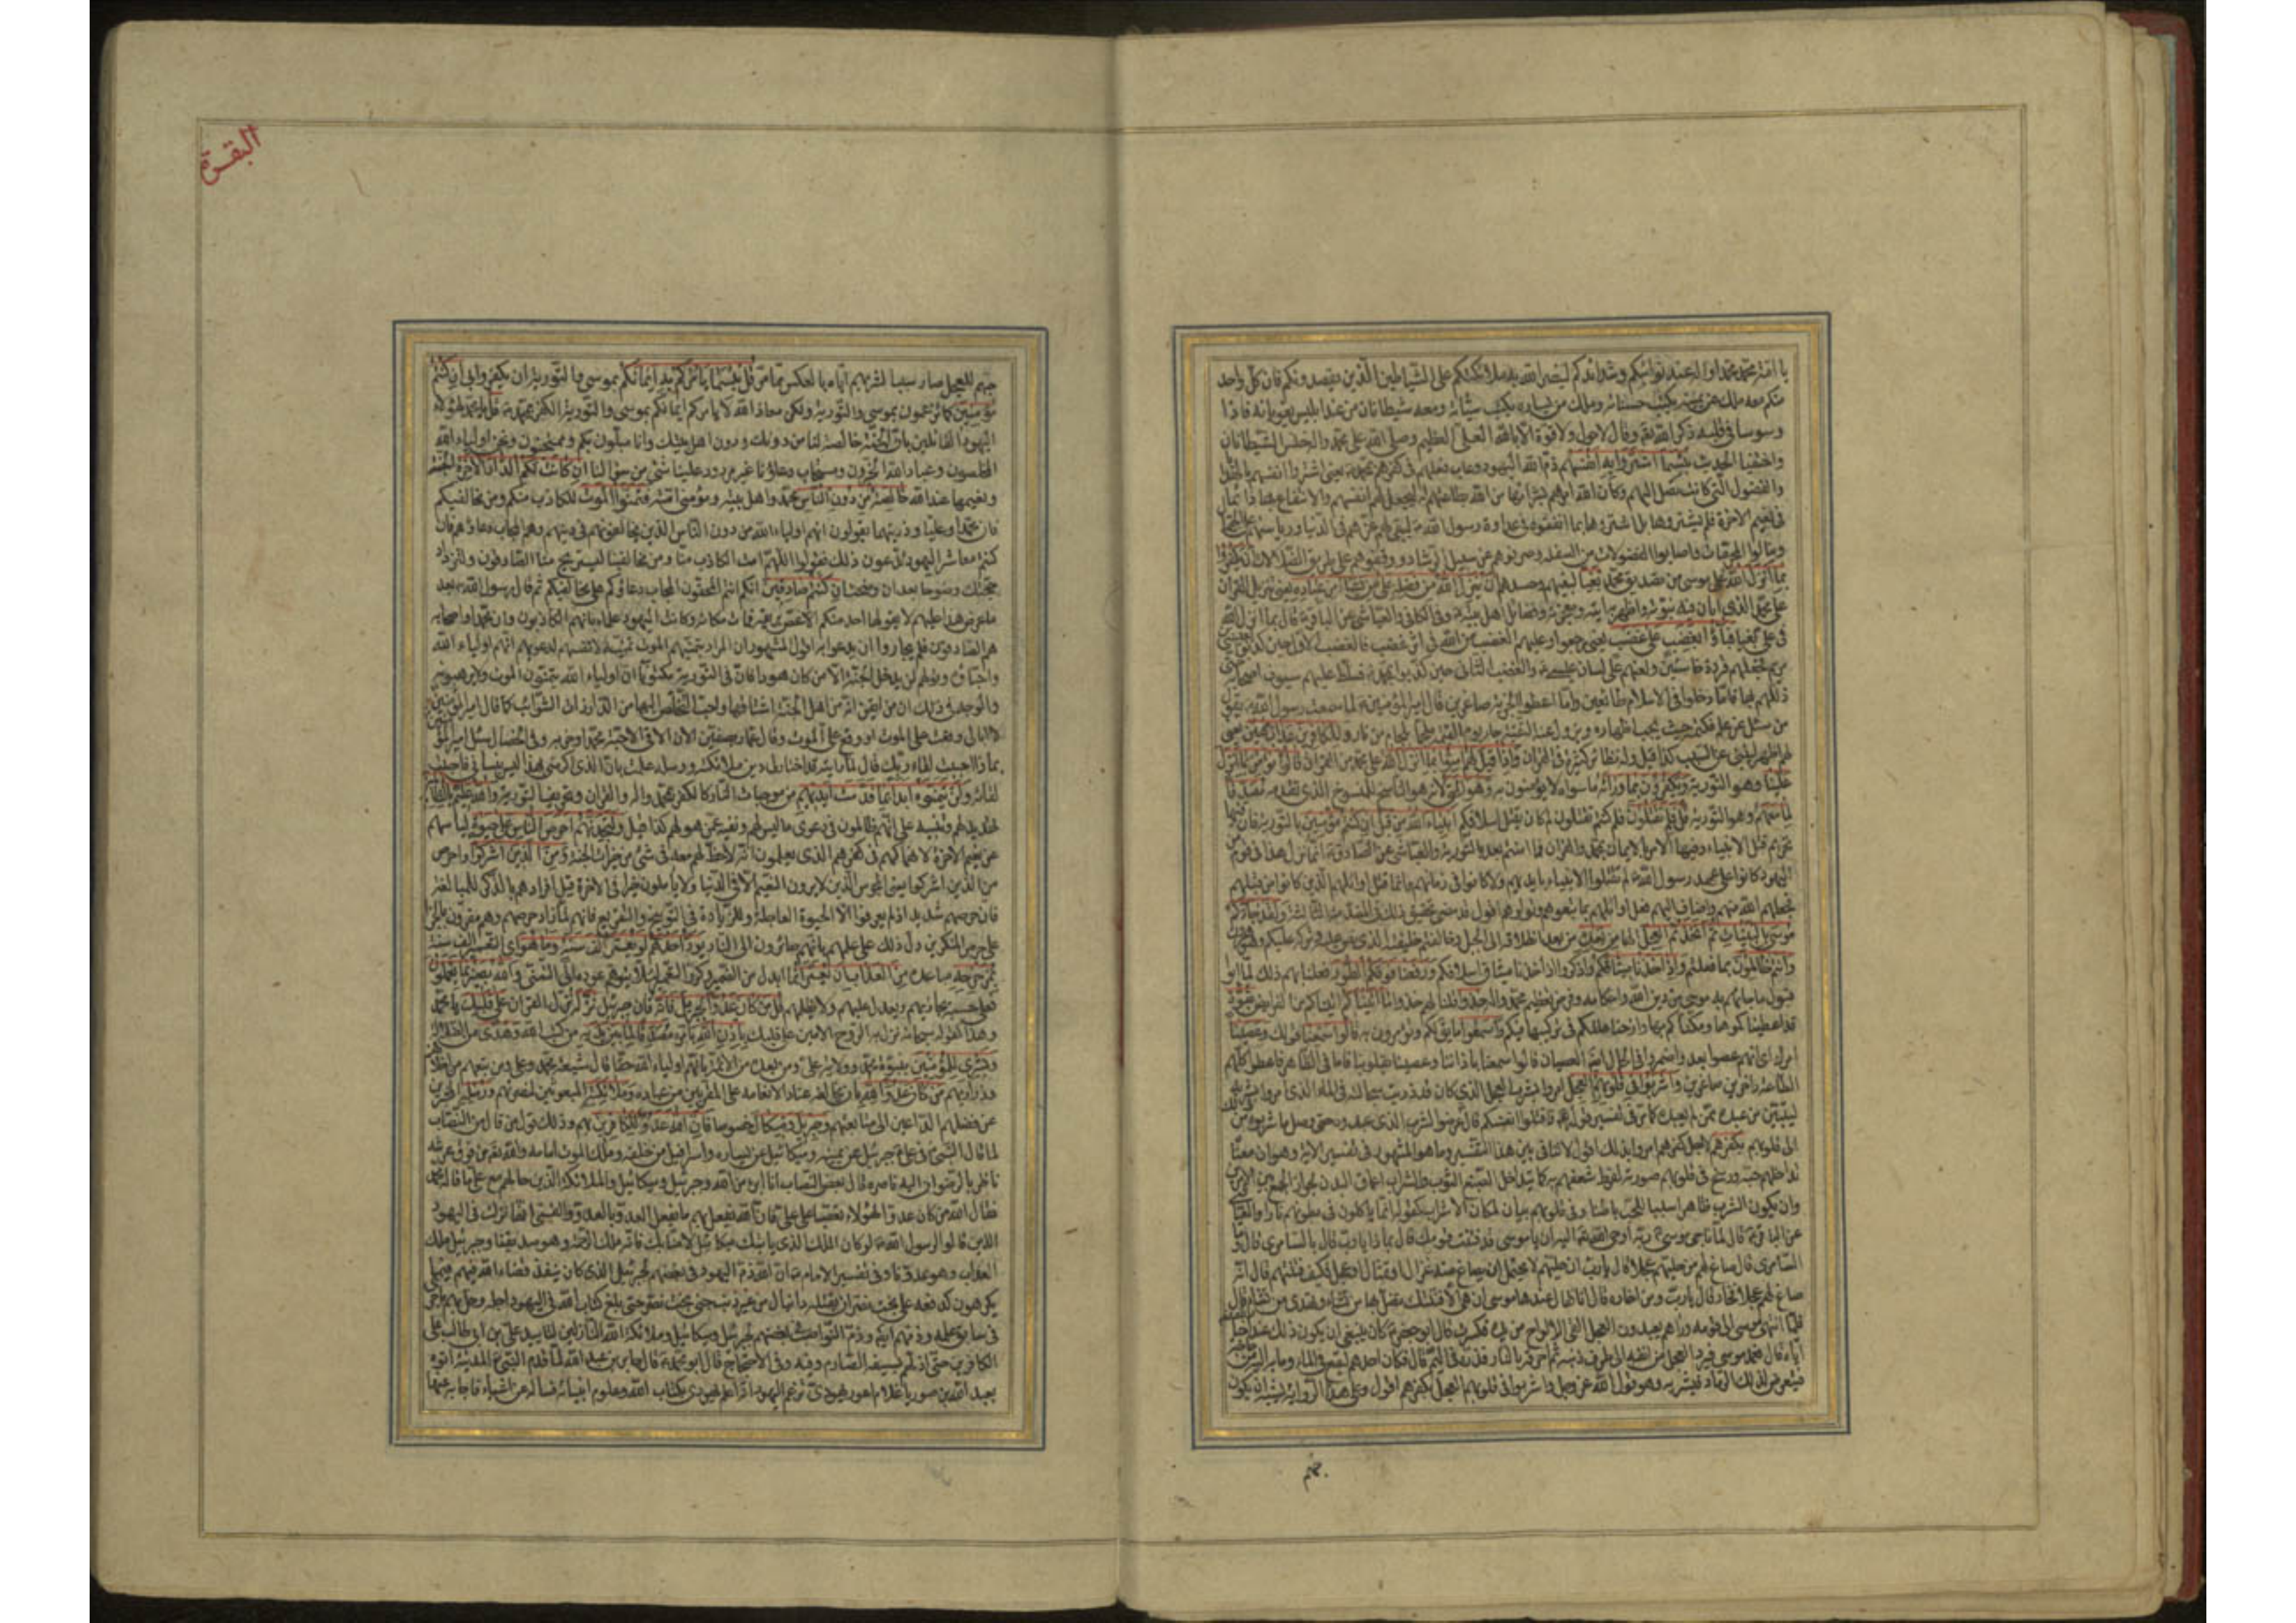 يا امّة محمّد محمّدا واله عند نوائبكم وشدائدكم لينصر الله به ملائكتكم على الشياطين الّذين يقصدونكم فان كلّ واحد
منكم معه ملك عن يمينه يكتب حسناته وملك عن يساره يكتب سيّئاته ومعه شيطانان من عند ابليس يغويانه فاذا
وسوسا في قلبه ذكر الله وقال لا حول ولا قوة الا بالله العلىّ العظيم وصلى الله على محمّد واله الشيطانان
واختفيا الحديث بئسما اشتروا به انفسهم ذمّ الله اليهود وعاب فعلهم في كفرهم بمحمّد يعنى اشتروا انفسهم
والفضول الّتى كانت تصل اليهم وكان الله امرهم بشرائها من الله بطاعتهم له ليجعل لهم انفسهم والانتفاع بها دائما
في نعيم الاخرة فلم يشتروها بل اشتروها بما انفقوه في عداوة رسول الله ليبقى لهم عزّهم في الدّنيا ورياستهم على الجهال
وينالوا المحرّمات واصابوا الفضولات من السفلة وصرفوهم عن سبيل الرشاد ووقفوهم على طريق الضلالات ان يكفروا
بما انزل الله على موسى من تصديق محمّد بغيا لبغيهم وحسدهم ان ينزل الله من فضله على من يشاء من عباده يعنى تنزيل القران
على محمّد الّذى ابان فيه نبوّته واظهر به ايته ومعجزته وفضائل اهل بيته وفي الكافى والعياشى عن الباقر قال بما انزل الله
في علىّ بغيا فباؤا بغضب على غضب يعنى رجعوا وعليهم الغضب من الله في اثر غضب فالغضب الاول حين كذّبوا بعيسى
بن مريم فجعلهم قردة خاسئين ولعنهم على لسان عيسى والغضب الثانى حين كذّبوا بمحمّد فسلّط عليهم سيوف اصحابه
ذلّلهم بها فامّا دخلوا في الاسلام طائعين وامّا اعطوا الجزية صاغرين قال امير المؤمنين سمعت رسول الله يقول
من سئل عن علم فكتمه حيث يجب اظهاره وتزول عنه التقيّة جاء يوم القيمة ملجما بلجام من نار وللكافرين عذاب مهين
واذا قيل لهم امنوا بما انزل الله على محمّد من القران قالوا نؤمن بما انزل
علينا وهو التّورية ويكفرون بما ورائه ما سواه لا يؤمنون به وهو الحق لانه هو الناسخ للمنسوخ الذى تقدّمه مصدّقا
لما معهم وهو التّورية قل فلم تقتلون فلم كنتم تقتلون لم كان يقتل اسلافكم انبياء الله من قبل ان كنتم مؤمنين بالتّورية فان فيها
تحريم قتل الانبياء وفيها الامر بالايمان بمحمّد والقران فما امنتم بعد بالتورية والعياشى عن الصّادق انما نزل هذا في قوم
اليهود كانوا على عهد رسول الله لم يقتلوا الانبياء بايديهم ولا كانوا في زمانهم وانما قتل اوائلهم الّذين كانوا من قبلهم
فجعلهم الله منهم واضاف اليهم فعل اوائلهم بما تبعوهم وتولوهم اقول قد مضى تحقيق ذلك في المقدمة الثالثة ولقد جاءكم
موسى بالبيّنات ثم اتّخذتم العجل الها من بعده من بعد انطلاقه الى الجبل وخالفتم خليفته الذى نصّ عليه وتركه عليكم وهو هرون
وانتم ظالمون بما فعلتم واذ اخذنا ميثاقكم واذكروا اذ اخذنا ميثاق اسلافكم ورفعنا فوقكم الطّور فعلنا بهم ذلك لما ابوا
قبول ما جاءهم به موسى من دين الله واحكامه وفرض تعظيم محمّد واله خذوا قلنا لهم خذوا ما اتيناكم من الفرائض بقوّة
قد اعطيناكموها ومكّنّاكم بها وازحنا عللكم في تركيبها فيكم واسمعوا ما يقال لكم وتؤمرون به قالوا سمعنا قولك وعصينا
امرك اى انهم عصوا بعد واضمروا في الحال ايضا العصيان قالوا سمعنا باذاننا وعصينا بقلوبنا فاما في الظاهر فاعطوا كلّهم
الطاعة داخرين صاغرين واشربوا في قلوبهم العجل امروا بشرب العجل الذى كان قد ذريت سحالته في الماء الذى امروا بشربه
ليتبيّن من عبده ممّن لم يعبده كما مرّ في تفسير قوله فاقتلوا انفسكم قال عرضوا لشرب الذى عبدوه حتى وصل ما شربوه من ذلك
الى قلوبهم بكفرهم لاجل كفرهم امروا بذلك اقول لا تنافى بين هذا التفسير وما هو المشهور في تفسير الاية وهو ان معناه
تداخلهم حبّه ورسخ في قلوبهم صورته لفرط شغفهم به كما يتداخل الصبغ الثوب والشراب اعماق البدن لجواز الجمع بين الامرين
وان يكون الشرب ظاهرا سببا للحبّ باطنا وفي قلوبهم بيان لمكان الاشراب كقوله انما ياكلون في بطونهم نارا والعيّاشى
عن الباقر قال لمّا ناجى موسى ربّه اوحى الله اليه ان يا موسى قد فتنت قومك قال بماذا يا ربّ قال بالسامرى قال وما
السّامرى قال صاغ لهم من حليّهم عجلا قال يا ربّ ان حليّهم لا يحتمل ان يصاغ منه غزال او تمثال او عجل فكيف فتنتهم قال انه
صاغ لهم عجلا فخار قال يا ربّ ومن اخاره قال انا قال عندها موسى ان هى الا فتنتك تضلّ بها من تشاء وتهدى من تشاء قال
فلمّا انتهى موسى الى قومه وراهم يعبدون العجل القى الالواح من يده فكسرت قال ابو جعفر كان ينبغى ان يكون ذلك عند اخبار الله
ايّاه قال فعمد موسى فبرد العجل من انفه الى طرف ذنبه ثم احرقه بالنار فذرّه في اليمّ قال فكان احدهم ليقع في الماء وما به اليه من حاجة
فيتعرض لذلك الرّماد فيشربه وهو قول الله عزّ وجل واشربوا في قلوبهم العجل بكفرهم اقول وعلى هذا الرّواية يشبه ان يكون
حبّهم
البقرة
حبّهم للعجل صار سببا لشربهم ايّاه بالعكس ممّا مرّ قل بئسما يأمركم به ايمانكم بموسى والتّورية ان تكفروا بى ان كنتم
مؤمنين كما تزعمون بموسى والتّورية ولكن معاذ الله لا يأمركم ايمانكم بموسى والتّورية الكفر بمحمّد قل يا محمّد لهؤلاء
اليهود القائلين بان الجنّة خالصة لنا من دونك ودون اهل بيتك وانا مبتلون بكم وممتحنون ونحن اولياء الله
المخلصون وعباد الله الخيّرون ومستجاب دعاؤنا غير مردود علينا شئ من سؤالنا ان كانت لكم الدّار الاخرة الجنّة
ونعيمها عند الله خالصة من دون الناس محمّد واهل بيته ومؤمنى امّته فتمنّوا الموت للكاذب منكم ومن مخالفيكم
فان محمّدا وعليّا وذريتهما يقولون انهم اولياء الله من دون الناس الّذين يخالفونهم في دينهم وهم المجاب دعاؤهم فان
كنتم معاشر اليهود تدّعون ذلك فقولوا اللّهم امت الكاذب منّا ومن مخالفينا ليستريح منّا الصّادقون ولتزداد
حجّتك وضوحا بعد ان وضحت ان كنتم صادقين انّكم انتم المحقّون المجاب دعاؤكم على مخالفيكم ثم قال رسول الله بعد
ما عرض هذا عليهم لا يقولها احد منكم الا غصّ بريقه فمات مكانه وكانت اليهود علماء بانهم الكاذبون وان محمّدا واصحابه
هم الصّادقون فلم يجسروا ان يدعوا به اقول المشهور ان المراد بتمنّيهم الموت تمنّيه لانفسهم لدعويهم انهم اولياء الله
واحبّاؤه وقولهم لن يدخل الجنّة الا من كان هودا فان في التّورية مكتوبا ان اولياء الله يتمنّون الموت ولا يرهبونه
والوجه في ذلك ان من ايقن انه من اهل الجنّة اشتاقها واحبّ التّخلّص اليها من الدّار ذات الشوائب كما قال امير المؤمنين
لا ابالى وقعت على الموت او وقع علىّ الموت وقال عمّار بصفّين الان الاقى الاحبّة محمّدا وحزبه وفي الخصال سئل امير المؤمنين
بماذا احببت لقاء ربّك قال لمّا رايته قد اختار لى دين ملائكته ورسله علمت بانّ الذى اكرمنى بهذا ليس ينسانى فاحببت
لقائه ولن يتمنّوه ابدا بما قدّمت ايديهم من موجبات النّار كالكفر بمحمّد واله والقران وتحريف التّورية والله عليم بالظّالمين
تهديد لهم وتنبيه على انّهم ظالمون في دعوى ما ليس لهم ونفيه عمّن هو لهم كذا قيل ولتجدنّهم احرص الناس على حيوة ليأسهم
عن نعيم الاخرة لانهماكهم في كفرهم الذى يعلمون انه لا حظّ لهم معه في شئ من خيرات الجنّة ومن الّذين اشركوا واحرص
من الّذين اشركوا يعنى المجوس الّذين لا يرون النعيم الا في الدّنيا ولا يأملون خيرا في الاخرة قيل افرادهم بالذّكر للمبالغة
فان حرصهم شديد اذ لم يعرفوا الّا الحيوة العاجلة وللزيادة في التّوبيخ والتّقريع فانهم لمّا زاد حرصهم وهم مقرّون بالجزاء
على حرص المنكرين دلّ ذلك على علمهم بانهم صائرون الى النّار يودّ احدهم لو يعمّر الف سنة وما هو اى التعمير الف سنة
بمزحزحه مباعده من العذاب ان يعمّر انما ابدل من الضمير وكرّر التّعمير لئلا يتوهم عوده الى التمنّى والله بصير بما يعملون
فعلى حسبه يجازيهم ويعدل عليهم ولا يظلمهم قل من كان عدوّا لجبريل فانه فان جبرئيل نزّله نزّل القران على قلبك يا محمّد
وهذا كقوله سبحانه نزل به الروح الامين على قلبك باذن الله بامره مصدّقا لما بين يديه من كتب الله وهدى من الضلالة
وبشرى للمؤمنين بنبوّة محمّد وولاية علىّ ومن بعده من الائمّة بانّهم اولياء الله حقّا قال شيعة محمّد وعلى ومن تبعهم من اخلافهم
وذراريهم من كان عدوّا لله بان خالفه عنادا لانعامه على المقرّبين من عباده وملائكته المبعوثين لنصرتهم ورسله المخبرين
عن فضلهم الداعين الى متابعتهم وجبريل وميكال خصوصا فان الله عدوّ للكافرين بهم وذلك قول من قال من النّصّاب
لما قال النّبىّ في علىّ جبرئيل عن يمينه وميكائيل عن يساره واسرافيل من خلفه وملك الموت امامه والله تعالى من فوق عرشه
ناظر بالرضوان اليه ناصره قال بعض النصّاب انا ابرء من الله وجبرئيل وميكائيل والملائكة الّذين حالهم مع علىّ ما قاله محمّد
فقال الله من كان عدوّا لهؤلاء تعصّبا على علىّ فان الله يفعل بهم ما يفعل العدوّ بالعدوّ والقمّى انها نزلت في اليهود
الذين قالوا لرسول الله لو كان الملك الذى يأتيك ميكائيل لامنّا بك فانه ملك الرّحمة وهو صديقنا وجبرئيل ملك
العذاب وهو عدوّنا وفي تفسير الامام ان الله ذمّ اليهود في بغضهم لجبرئيل الذى كان ينفذ قضاء الله فيهم فيما
يكرهون كدفعه عن بخت نصّر ان يقتله دانيال من غير ذنب جنى بخت نصّر حتى بلغ كتاب الله في اليهود اجله وحلّ بهم ما جرى
في سابق علمه وذمّهم ايضا وذمّ النواصب لبغضهم لجبرئيل وميكائيل وملائكة الله النّازلين لتأييد علىّ بن ابى طالب على
الكافرين حتى اذلّهم بسيفه الصّارم وفيه وفي الاحتجاج قال ابو محمّد قال جابر بن عبد الله لمّا قدم النّبىّ المدينة اتوه
بعبد الله بن صوريا غلام اعور يهودىّ تزعم اليهود انه اعلم يهودى بكتاب الله وعلوم انبيائه فساله عن اشياء فاجابه عنها